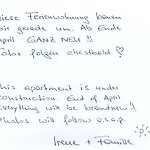 Diese Ferienwohnung bauen
wir gerade um. Ab Ende
April GANZ NEU!!
Fotos folgen ehestbald!
This apartment is under
construction. End of April
everything will be brandnew!!
Photos will follow a.s.a.p.
Irene + Familie